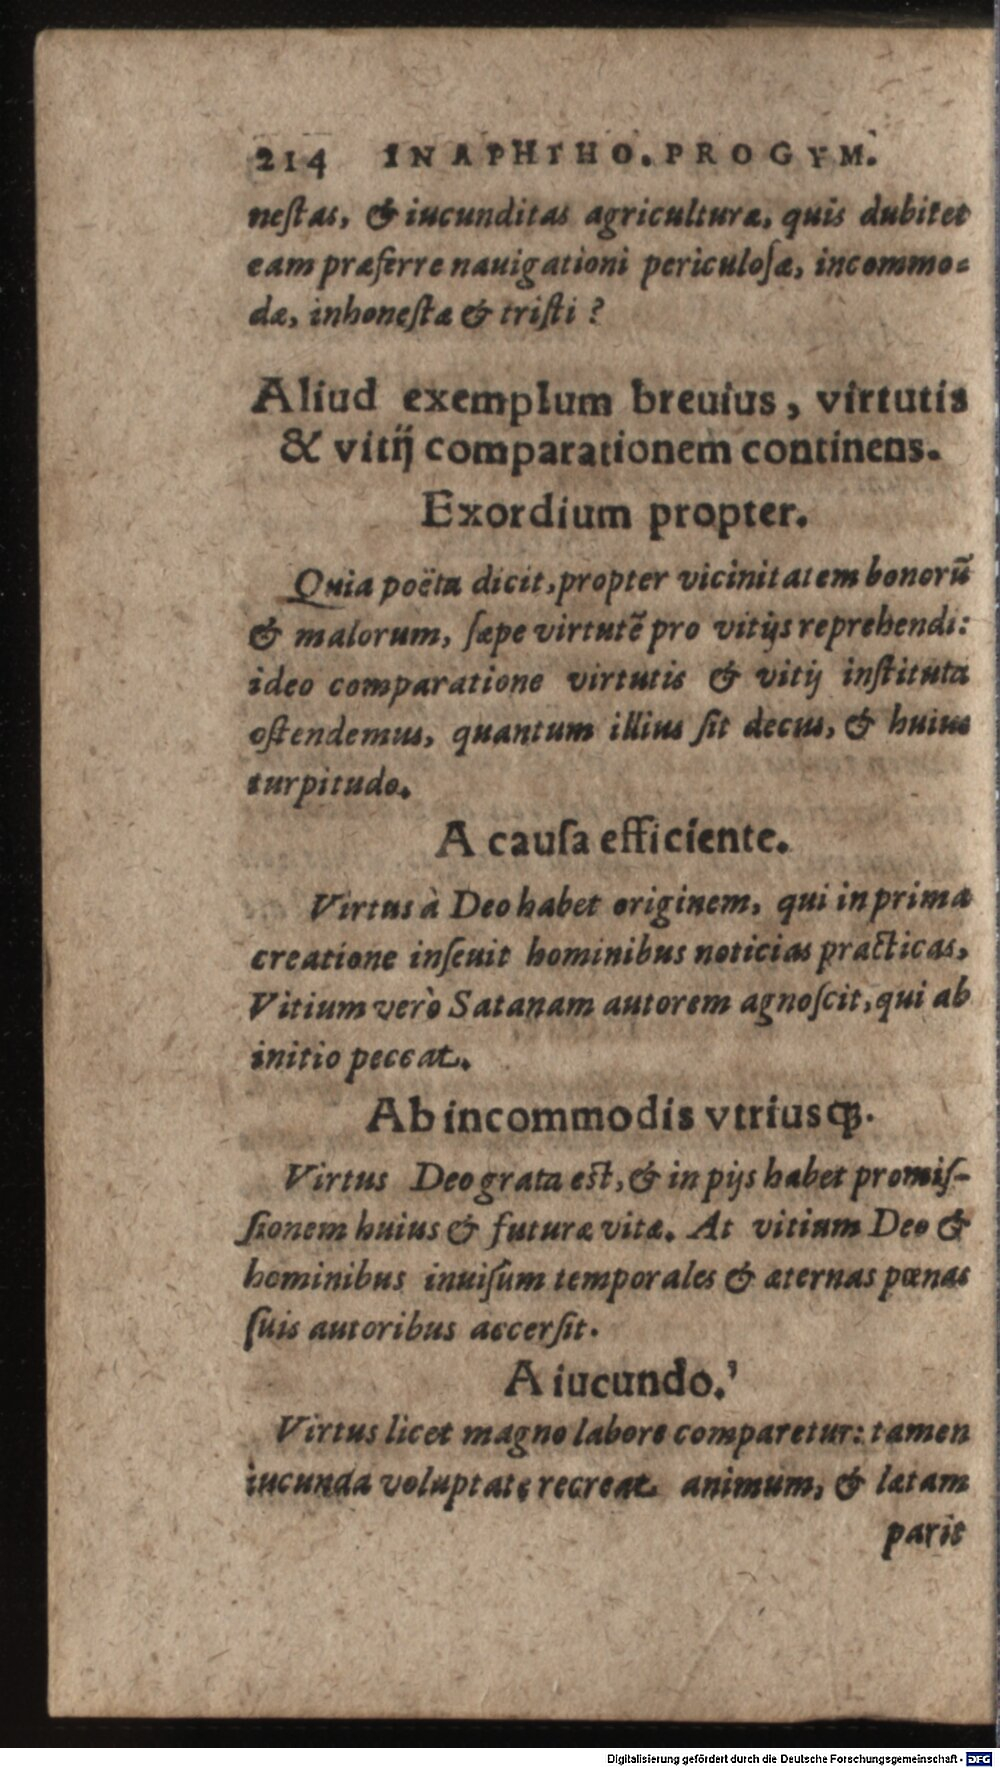 214 IN APHTHO. PROGYM.
neſtas, & iucunditas agriculturæ, quis dubitet
eam præferre nauigationi periculoſæ, incommo=
dæ, inhoneſtæ & triſti ?
Aliud exemplum breuius, virtutis
& vitij comparationem continens.
Exordium propter.
Quia poëta dicit, propter vicinitatem bonorũ
& malorum, ſæpe virtutẽ pro vitijs reprehendi:
ideo comparatione virtutis & vitij inſtituta
oſtendemus, quantum illius ſit decus, & huius
turpitudo.
A cauſa efficiente.
Virtus à Deo habet originem, qui in prima
creatione inſeuit hominibus noticias practicas,
Vitium verò Satanam autorem agnoſcit, qui ab
initio peccat.
Ab incommodis vtriusqꝫ.
Virtus Deo grata est, & in pijs habet promiſ-
ſionem huius & futuræ vitæ. At vitium Deo &
hominibus inuiſum temporales & æternas pœnas
ſuis autoribus accerſit.
A iucundo.'
Virtus licet magno labore comparetur: tamen
iucunda voluptate recreat animum, & lætam
parit
Digitalisierung gefördert durch die Deutsche Forschungsgemeinschaft - DFG